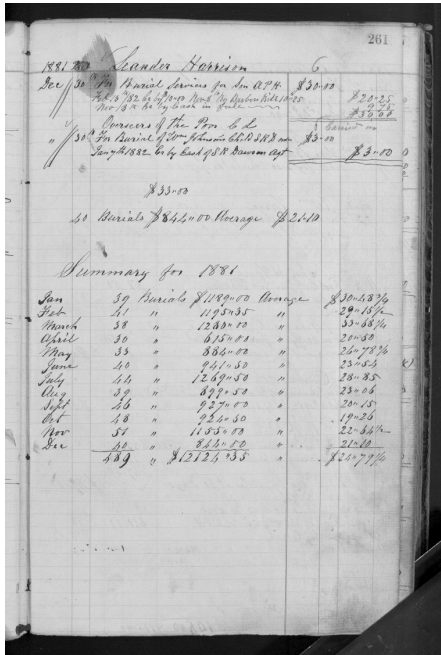 261
1881 Leander Harrison 6
Dec 30th For Burial Services for Son A.P.H. $30"00
Feb 13th '82 Cr by 10"00 $20"25
Nov 13th Cr by Cash in full 9"75
$30"00
Overseers of the Poor C L
" 30th For Burial of Johnsons Child $3"00
Jan 7th 1882 Cr by Cash of S R Dawson Agt $3"00
$33"00
40 Burials $844"00 Average $21"10
Summary for 1881
Jan 39 Burials $1189"00 Average $30"48 3/4
Feb 41 " 1195"35 " 29"15 1/2
March 38 " 1280"00 " 33"68 1/4
April 30 " 615"00 " 20"50
May 33 " 884"00 " 26"78 3/4
June 40 " 941"50 " 23"54
July 44 " 1269"50 " 28"85
Aug 39 " 899"50 " 23"06
Sept 46 " 927"00 " 20"15
Oct 48 " 924"50 " 19"26
Nov 51 " 1155"00 " 22"64 1/2
Dec 40 " 844"00 " 21"10
489 " $12124"35 " $24"79 1/4